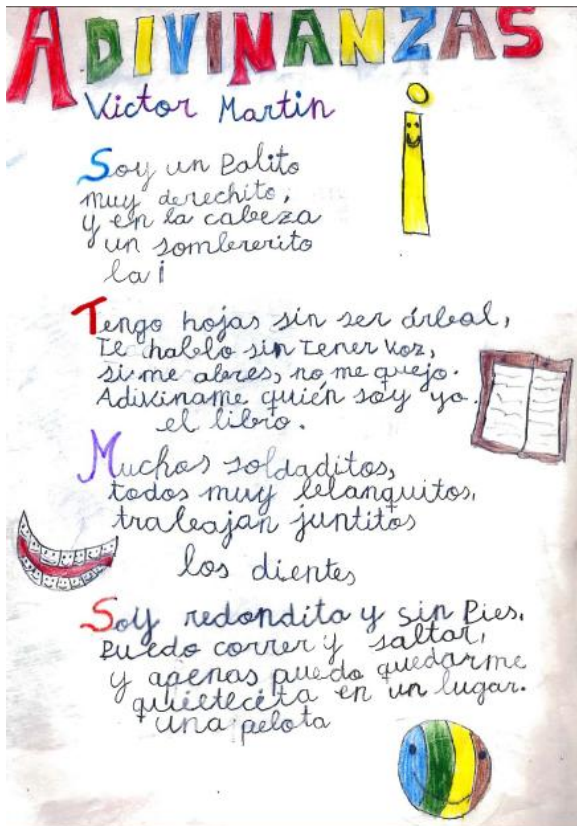 ADIVINANZAS
Victor Martin
Soy un Palito
muy derechito,
y en la cabeza
un sombrerito
la i
Tengo hojas sin ser árbol,
Te hablo sin Tener voz,
si me abres, no me quejo.
Adiviname quién soy yo.
el libro.
Muchos soldaditos,
todos muy blanquitos,
trabajan juntitos
los dientes
Soy redondita y sin Pies.
Puedo correr y saltar,
y apenas puedo quedarme
quietecita en un lugar.
una pelota